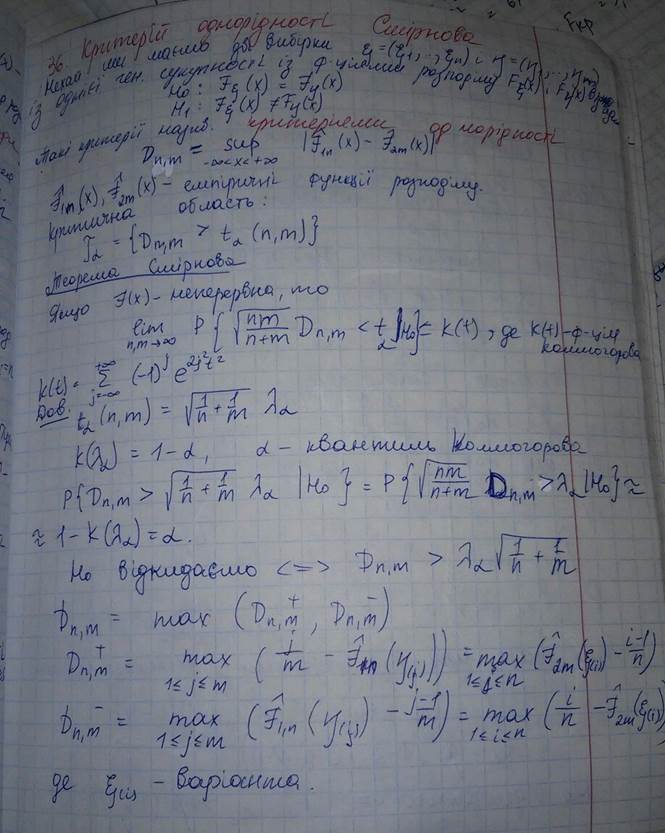 36. Критерій однорідності Смірнова
Нехай ми маємо дві вибірки ξ = (ξ₁,..., ξn) і η = (η₁,..., ηm)
із однієї ген. сукупності із ф-ціями розподілу Fξ(x) і Fη(x)
H₀ : Fξ(x) = Fη(x)
H₁ : Fξ(x) ≠ Fη(x)
Такі критерії назив. критеріями однорідності
Dn,m = sup -∞<x<+∞ |F̂₁n(x) - F̂₂m(x)|
F̂₁n(x), F̂₂m(x) - емпіричні функції розподілу.
Критична область:
T̄α = {Dn,m > tα(n,m)}
Теорема Смірнова
Якщо F(x) - неперервна, то
lim n,m→∞ P{√(nm/(n+m)) Dn,m < t | H₀} = K(t), де K(t)-ф-ція Колмогорова
K(t) = Σ j=-∞ +∞ (-1)^j e^(2j²t²)
Дов. tα(n,m) = √(1/n + 1/m) λα
K(λα) = 1-α, α - квантиль Колмогорова
P{Dn,m > √(1/n + 1/m) λα | H₀} = P{√(nm/(n+m)) Dn,m > λα | H₀} ≈
≈ 1-K(λα) = α.
H₀ відкидаємо <=> Dn,m > λα √(1/n + 1/m)
Dn,m = max (Dn,m⁺, Dn,m⁻)
Dn,m⁺ = max 1≤j≤m (j/m - F̂₁n(η(j))) = max 1≤j≤n (F̂₂m(ξ(i)) - (i-1)/n)
Dn,m⁻ = max 1≤j≤m (F̂₁,n(η(j)) - (j-1)/m) = max 1≤i≤n (i/n - F̂₂m(ξ(i)))
де ξ(i) - варіанта.
Fкр